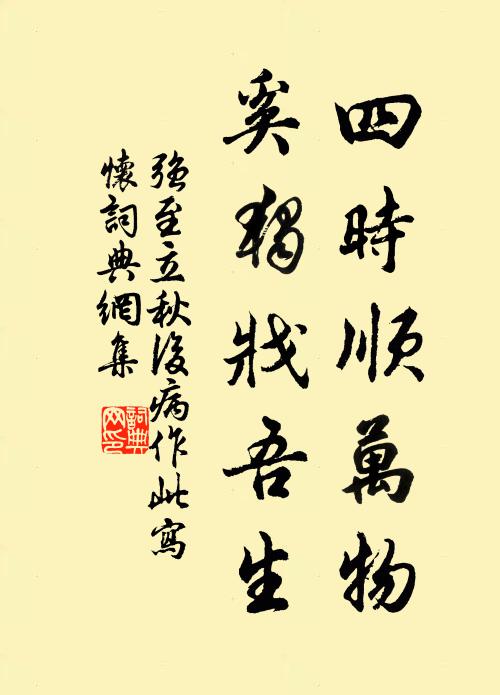 四時順萬物
奚獨戕吾生
强至立秋後病作此寫
懷詞典網集
詞典網印